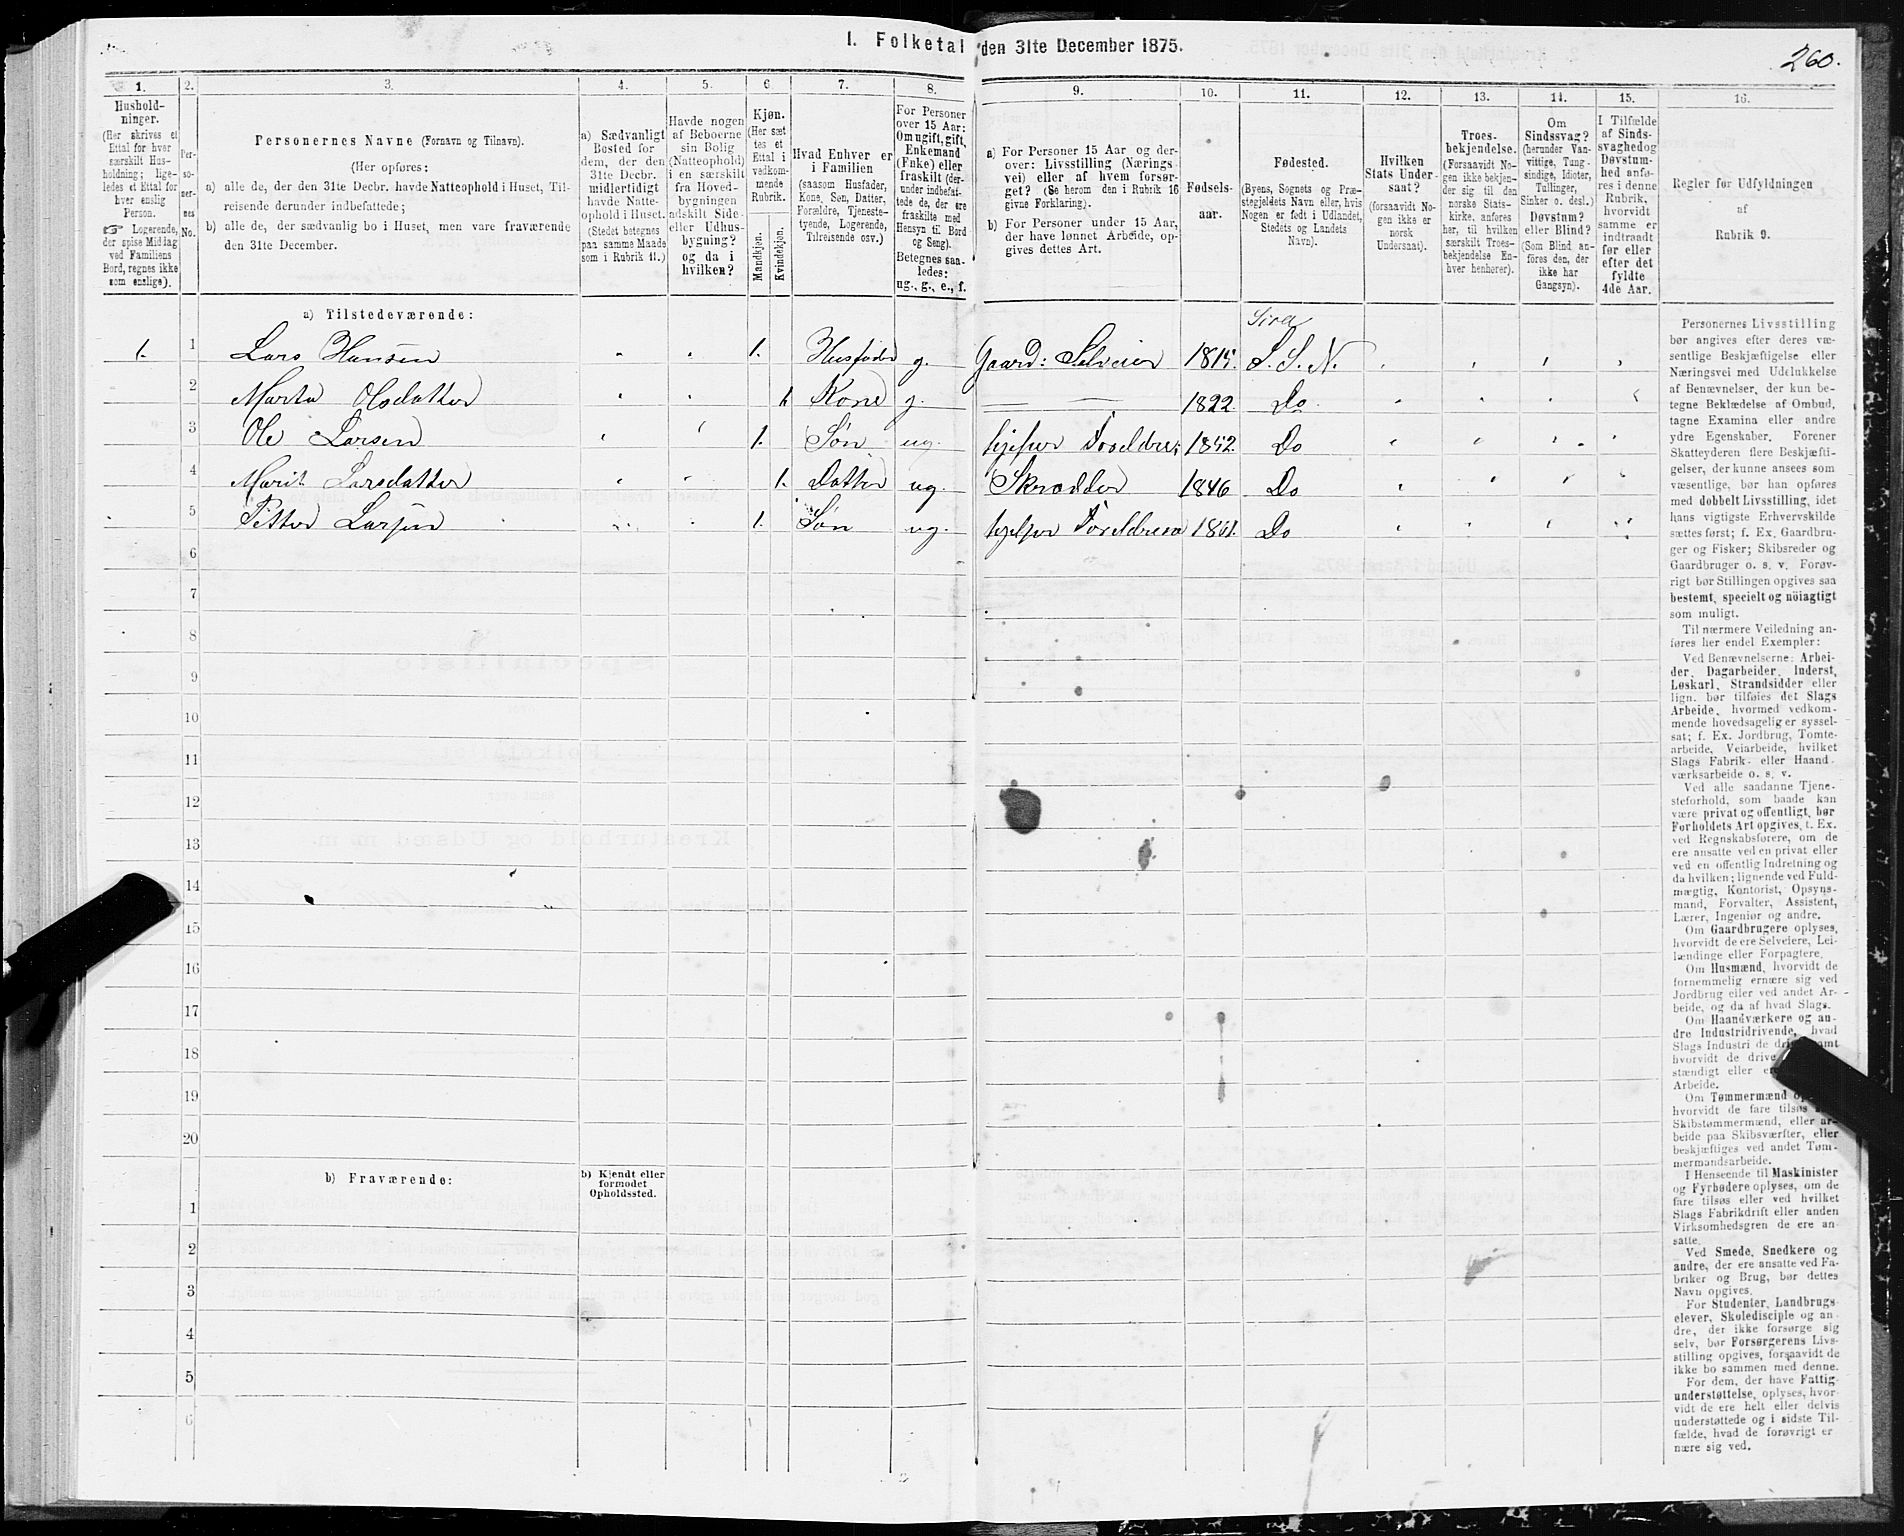 I. Folketal den 31te December 1875.
260.
1.
Hushold-
ninger.
(Her skrives et
Ettal for hver
særskilt Hus-
holdning; lige-
ledes et Ettal for
hver enslig
Person.
☞ Logerende,
der spise Middag
ved Familiens
Bord, regnes ikke
som enslige).
2.
Per-
so-
ner-
nes
No.
3.
Personernes Navne (Fornavn og Tilnavn).
(Her opføres:
a) alle de, der den 31te Decbr. havde Natteophold i Huset, Til-
reisende derunder indbefattede;
b) alle de, der sædvanlig bo i Huset, men vare fraværende
den 31te December.
4.
a) Sædvanligt
Bosted for
dem, der den
31te Decbr.
midlertidigt
havde Natte-
ophold i Huset.
(Stedet betegnes
paa samme Maade
som i Rubrik 11.)
5.
Havde nogen
af Beboerne
sin Bolig
(Natteophold)
i en særskilt
fra Hoved-
bygningen
adskilt Side-
eller Udhus-
bygning?
og da i
hvilken?
6.
Kjøn.
(Her sæt-
tes et
Ettal i
vedkom-
mende
Rubrik.
Mandkjøn.
Kvindekjøn.
7.
Hvad Enhver er
i Familien
(saasom Husfader,
Kone, Søn, Datter,
Forældre, Tjeneste-
tyende, Logerende,
Tilreisende osv.)
8.
For Personer
over 15 Aar:
Om ugift, gift,
Enkemand
(Enke) eller
fraskilt (der-
under indbefat-
tede de, der ere
fraskilte med
Hensyn til Bord
og Seng).
Betegnes saa-
ledes:
ug., g., e., f.
9.
a) For Personer 15 Aar og der-
over: Livsstilling (Nærings-
vei) eller af hvem forsør-
get? (Se herom den i Rubrik 16
givne Forklaring).
b) For Personer under 15 Aar,
der have lønnet Arbeide, op-
gives dettes Art.
10.
Fødsels-
aar.
11.
Fødested.
(Byens, Sognets og Præ-
stegjeldets Navn eller, hvis
Nogen er født i Udlandet,
Stedets og Landets
Navn).
12.
Hvilken
Stats Under-
saat?
(forsaavidt No-
gen ikke er
norsk
Undersaat).
13.
Troes-
bekjendelse.
(Forsaavidt No-
gen ikke bekjen-
der sig til den
norske Stats-
kirke, anføres
her, til hvilken
særskilt Troes-
bekjendelse En-
hver henhører).
14.
Om
Sindssvag?
(herunder Van-
vittige, Tung-
sindige, Idioter,
Tullinger,
Sinker o. desl.)
Døvstum?
eller Blind?
(Som Blind an-
føres den, der
ikke har
Gangsyn).
15.
I Tilfælde
af Sinds-
svaghed og
Døvstum-
hed anfø-
res i denne
Rubrik,
hvorvidt
samme er
indtraadt
før eller
efter det
fyldte
4de Aar.
16.
Regler for Udfyldningen
af
Rubrik 9.
a) Tilstedeværende:
Sira
1. 1 Lars Hansen 1. Husfader g. Gaard: Selveier 1815. S. S. N.
2 Marta Olsdatter 1 Kone g. — — 1822. Do.
3 Ole Larsen 1. Søn ug. hjelper Foreldrene 1852. Do
4 Marit Larsdatter 1. Datter ug. Skrædder 1846 Do
5 Petter Larsen 1. Søn ug. hjelper Foreldrene 1861. Do
6
7
8
9
10
11
12
13
14
15
16
17
18
19
20
b) Fraværende:
b) Kjendt eller
formodet
Opholdssted.
1
2
3
4
5
6
Personernes Livsstilling
bør angives efter deres væ-
sentlige Beskjæftigelse eller
Næringsvei med Udelukkelse
af Benævnelser, der kun be-
tegne Beklædelse af Ombud,
tagne Examina eller andre
ydre Egenskaber. Forener
Skatteyderen flere Beskjæfti-
gelser, der kunne ansees som
væsentlige, bør han opføres
med dobbelt Livsstilling, idet
hans vigtigste Erhvervskilde
sættes først; f. Ex. Gaardbru-
ger og Fisker; Skibsreder og
Gaardbruger o. s. v. Forøv-
rigt bør Stillingen opgives saa
bestemt, specielt og nöiagtigt
som muligt.
Til nærmere Veiledning an-
føres her endel Exempler:
Ved Benævnelserne: Arbei-
der, Dagarbeider, Inderst,
Løskarl, Strandsidder eller
lign. bør tilføies det Slags
Arbeide, hvormed vedkom-
mende hovedsagelig er syssel-
sat; f. Ex. Jordbrug, Tomte-
arbeide, Veiarbeide, hvilket
Slags Fabrik- eller Haand-
værksarbeide o. s. v.
Ved alle saadanne Tjene-
steforhold, som baade kan
være privat og offentligt, bør
Forholdets Art opgives, t. Ex.
ved Regnskabsførere, om de
ere ansatte ved en privat eller
ved en offentlig Indretning og
da hvilken; lignende ved Fuld-
mægtig, Kontorist, Opsyns-
mand, Forvalter, Assistent,
Lærer, Ingeniør og andre.
Om Gaardbrugere oplyses,
hvorvidt de ere Selveiere, Lei-
lændinge eller Forpagtere.
Om Husmænd, hvorvidt de
fornemmelig ernære sig ved
Jordbrug eller ved andet Ar-
beide, og da af hvad Slags.
Om Haandværkere og an-
dre Industridrivende, hvad
Slags Industri de
hvorvidt de drive
stændigt eller
Arbeide.
Om Tømmermænd
hvorvidt de fare tilsøs
Skibstømmermænd, eller ar-
beide paa Skibsværfter, eller
beskjæftiges ved andet Tøm-
mermandsarbeide.
I Henseende til Maskinister
og Fyrbødere oplyses, om de
fare tilsøs eller ved hvilket
Slags Fabrikdrift eller anden
Virksomhedsgren de ere an-
satte.
Ved Smede, Snedkere og
andre, der ere ansatte ved Fa-
briker og Brug, bør dettes
Navn opgives.
For Studenter, Landbrugs-
elever, Skoledisciple og an-
dre, der ikke forsørge sig
selv, bør Forsørgerens Livs-
stilling opgives, forsaavidt de
ikke bo sammen med denne.
For dem, der have Fattig-
understøttelse, oplyses, hvor-
vidt de ere helt eller delvis
understøttede og i sidste Til-
fælde, hvad de forøvrigt er-
nære sig ved.